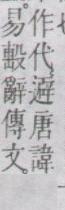 作代避唐諱
易毄辭傳文。